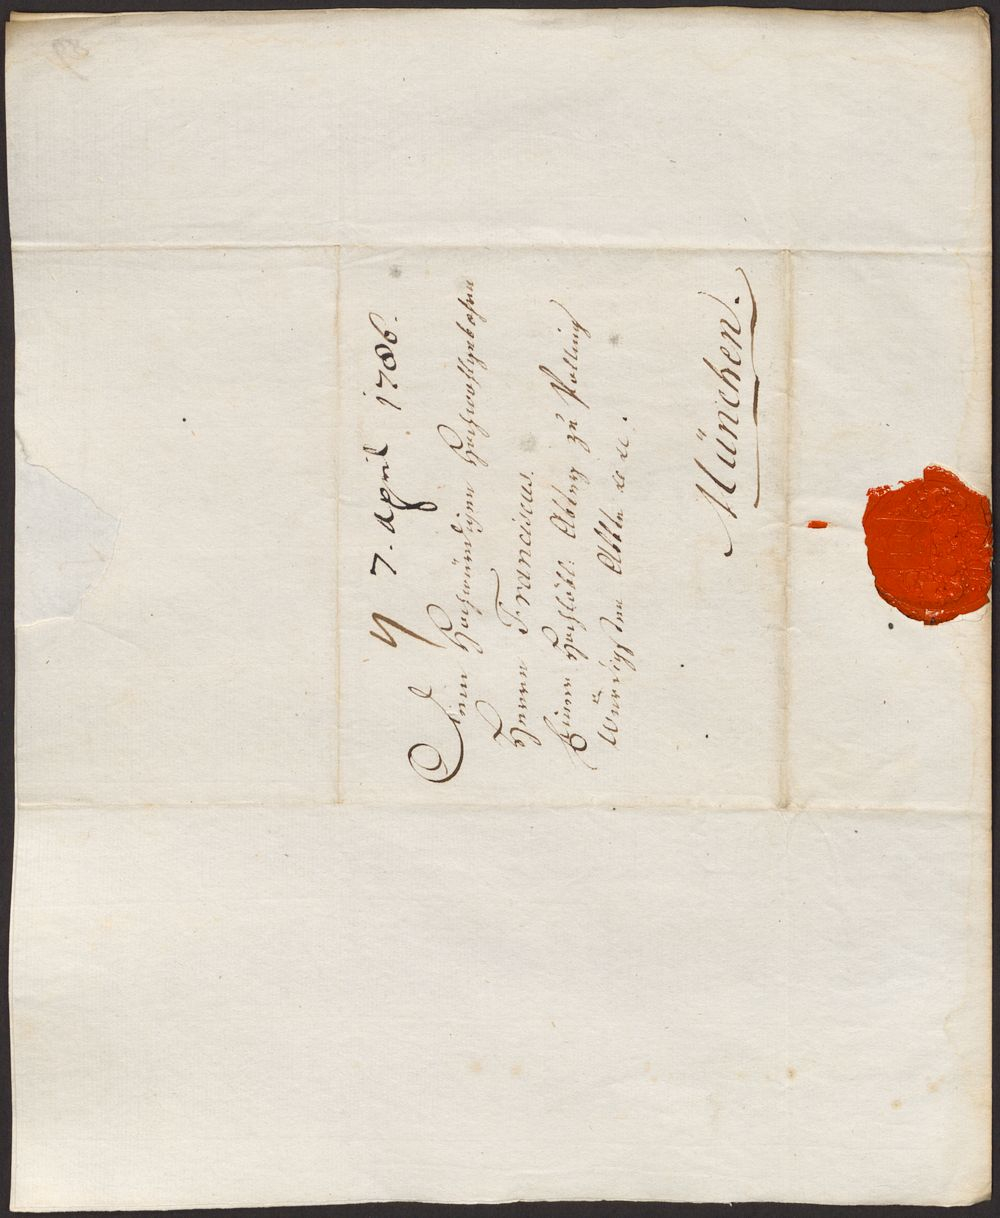 7. April 1786.
Dem Hochwürdigen Hochwohlgebohrn
Herrn Franciscus.
Einer Hochlöbl: Abbtey zu Polling
Würdigsten Abbten
München.